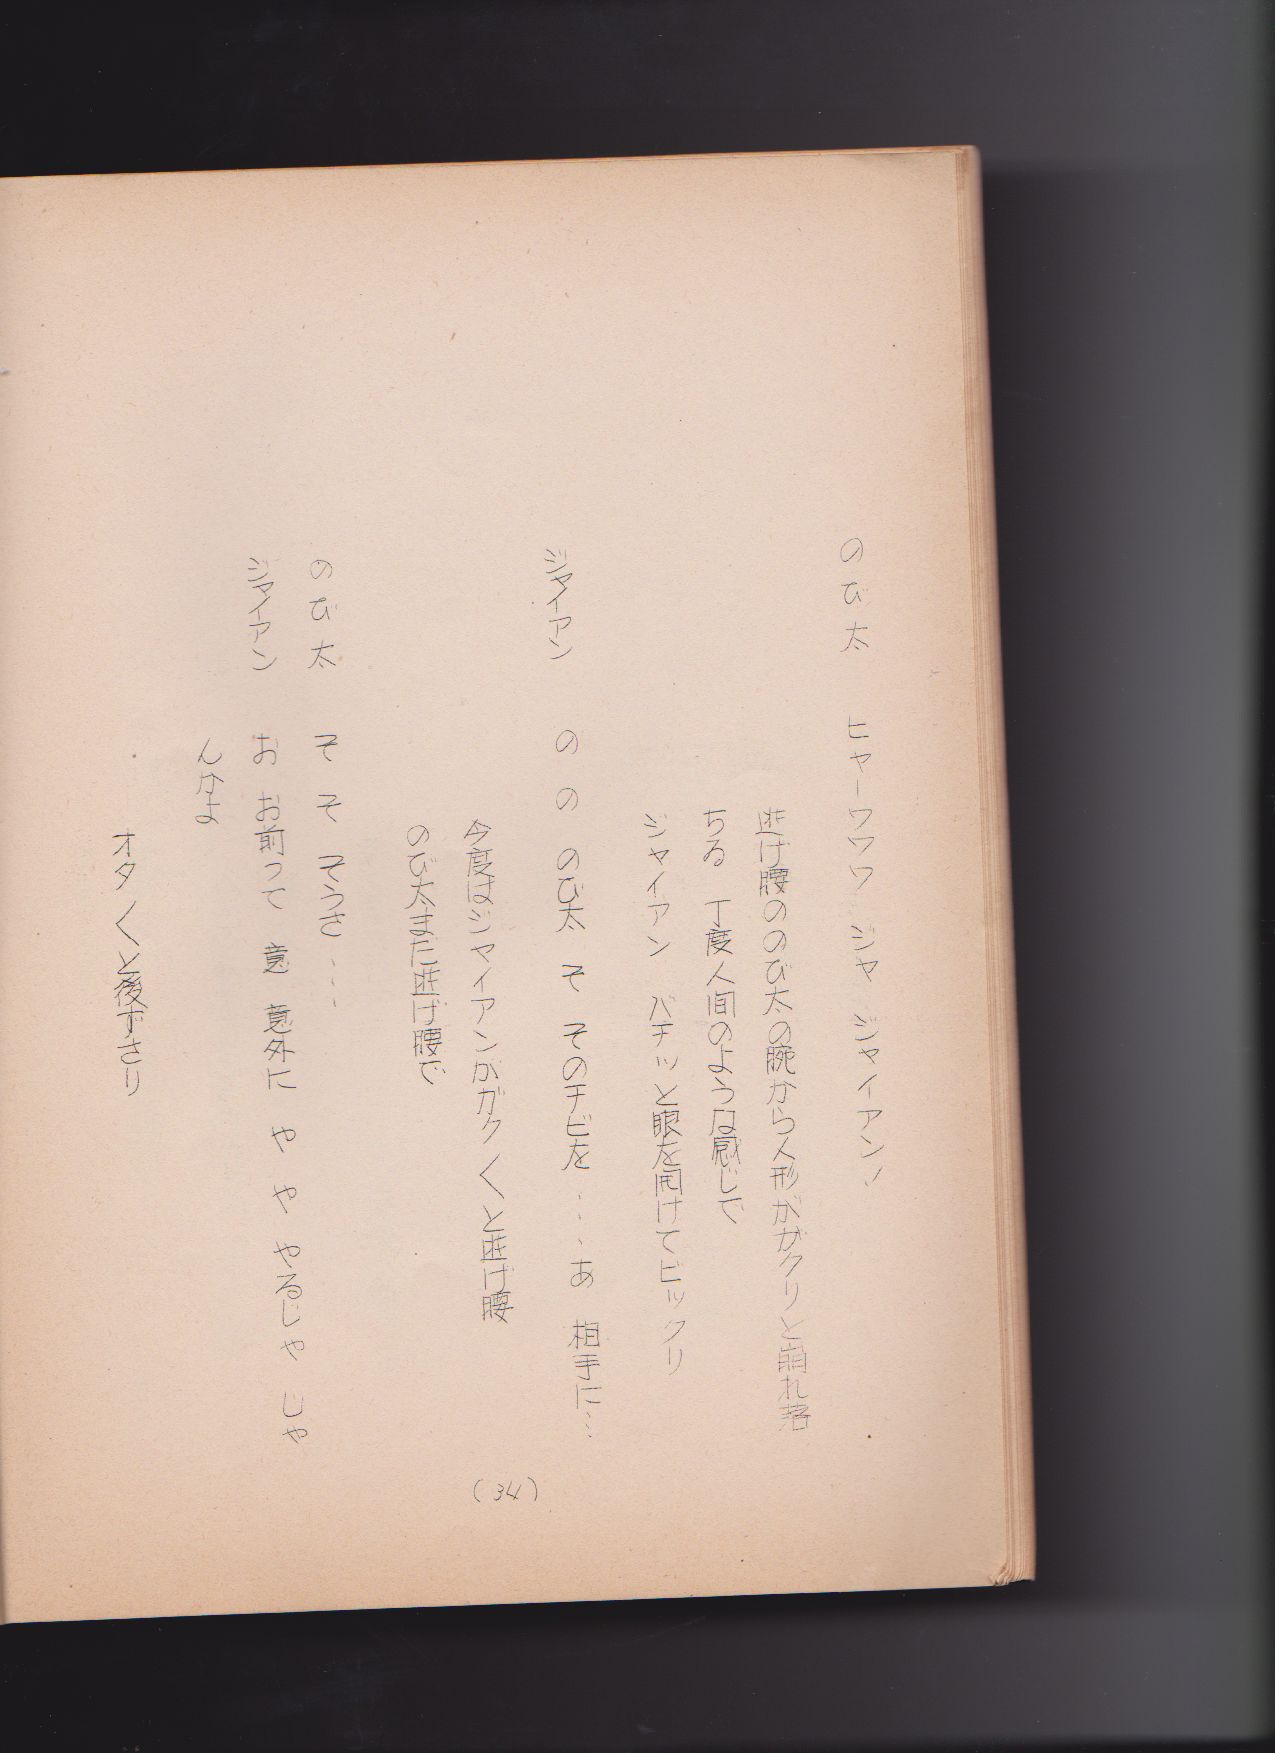 のび太　ヒャーワワワ　ジャ　ジャイアン！
逃げ腰ののび太の腕から人形がガクリと崩れ落
ちる　丁度人間のような感じで
ジャイアン　パチッと眼を開けてビックリ
ジャイアン　の　の　のび太　そ　そのチビを……あ　相手に…
今度はジャイアンがガク〱と逃げ腰
のび太まだ逃げ腰で
のび太　そ　そ　そうさ……
ジャイアン　お　お前って　意　意外に　や　や　やるじゃ　じゃ
んかよ
オタ〱と後ずさり
(34)